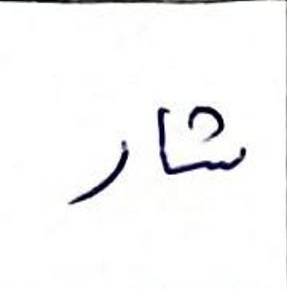 شار